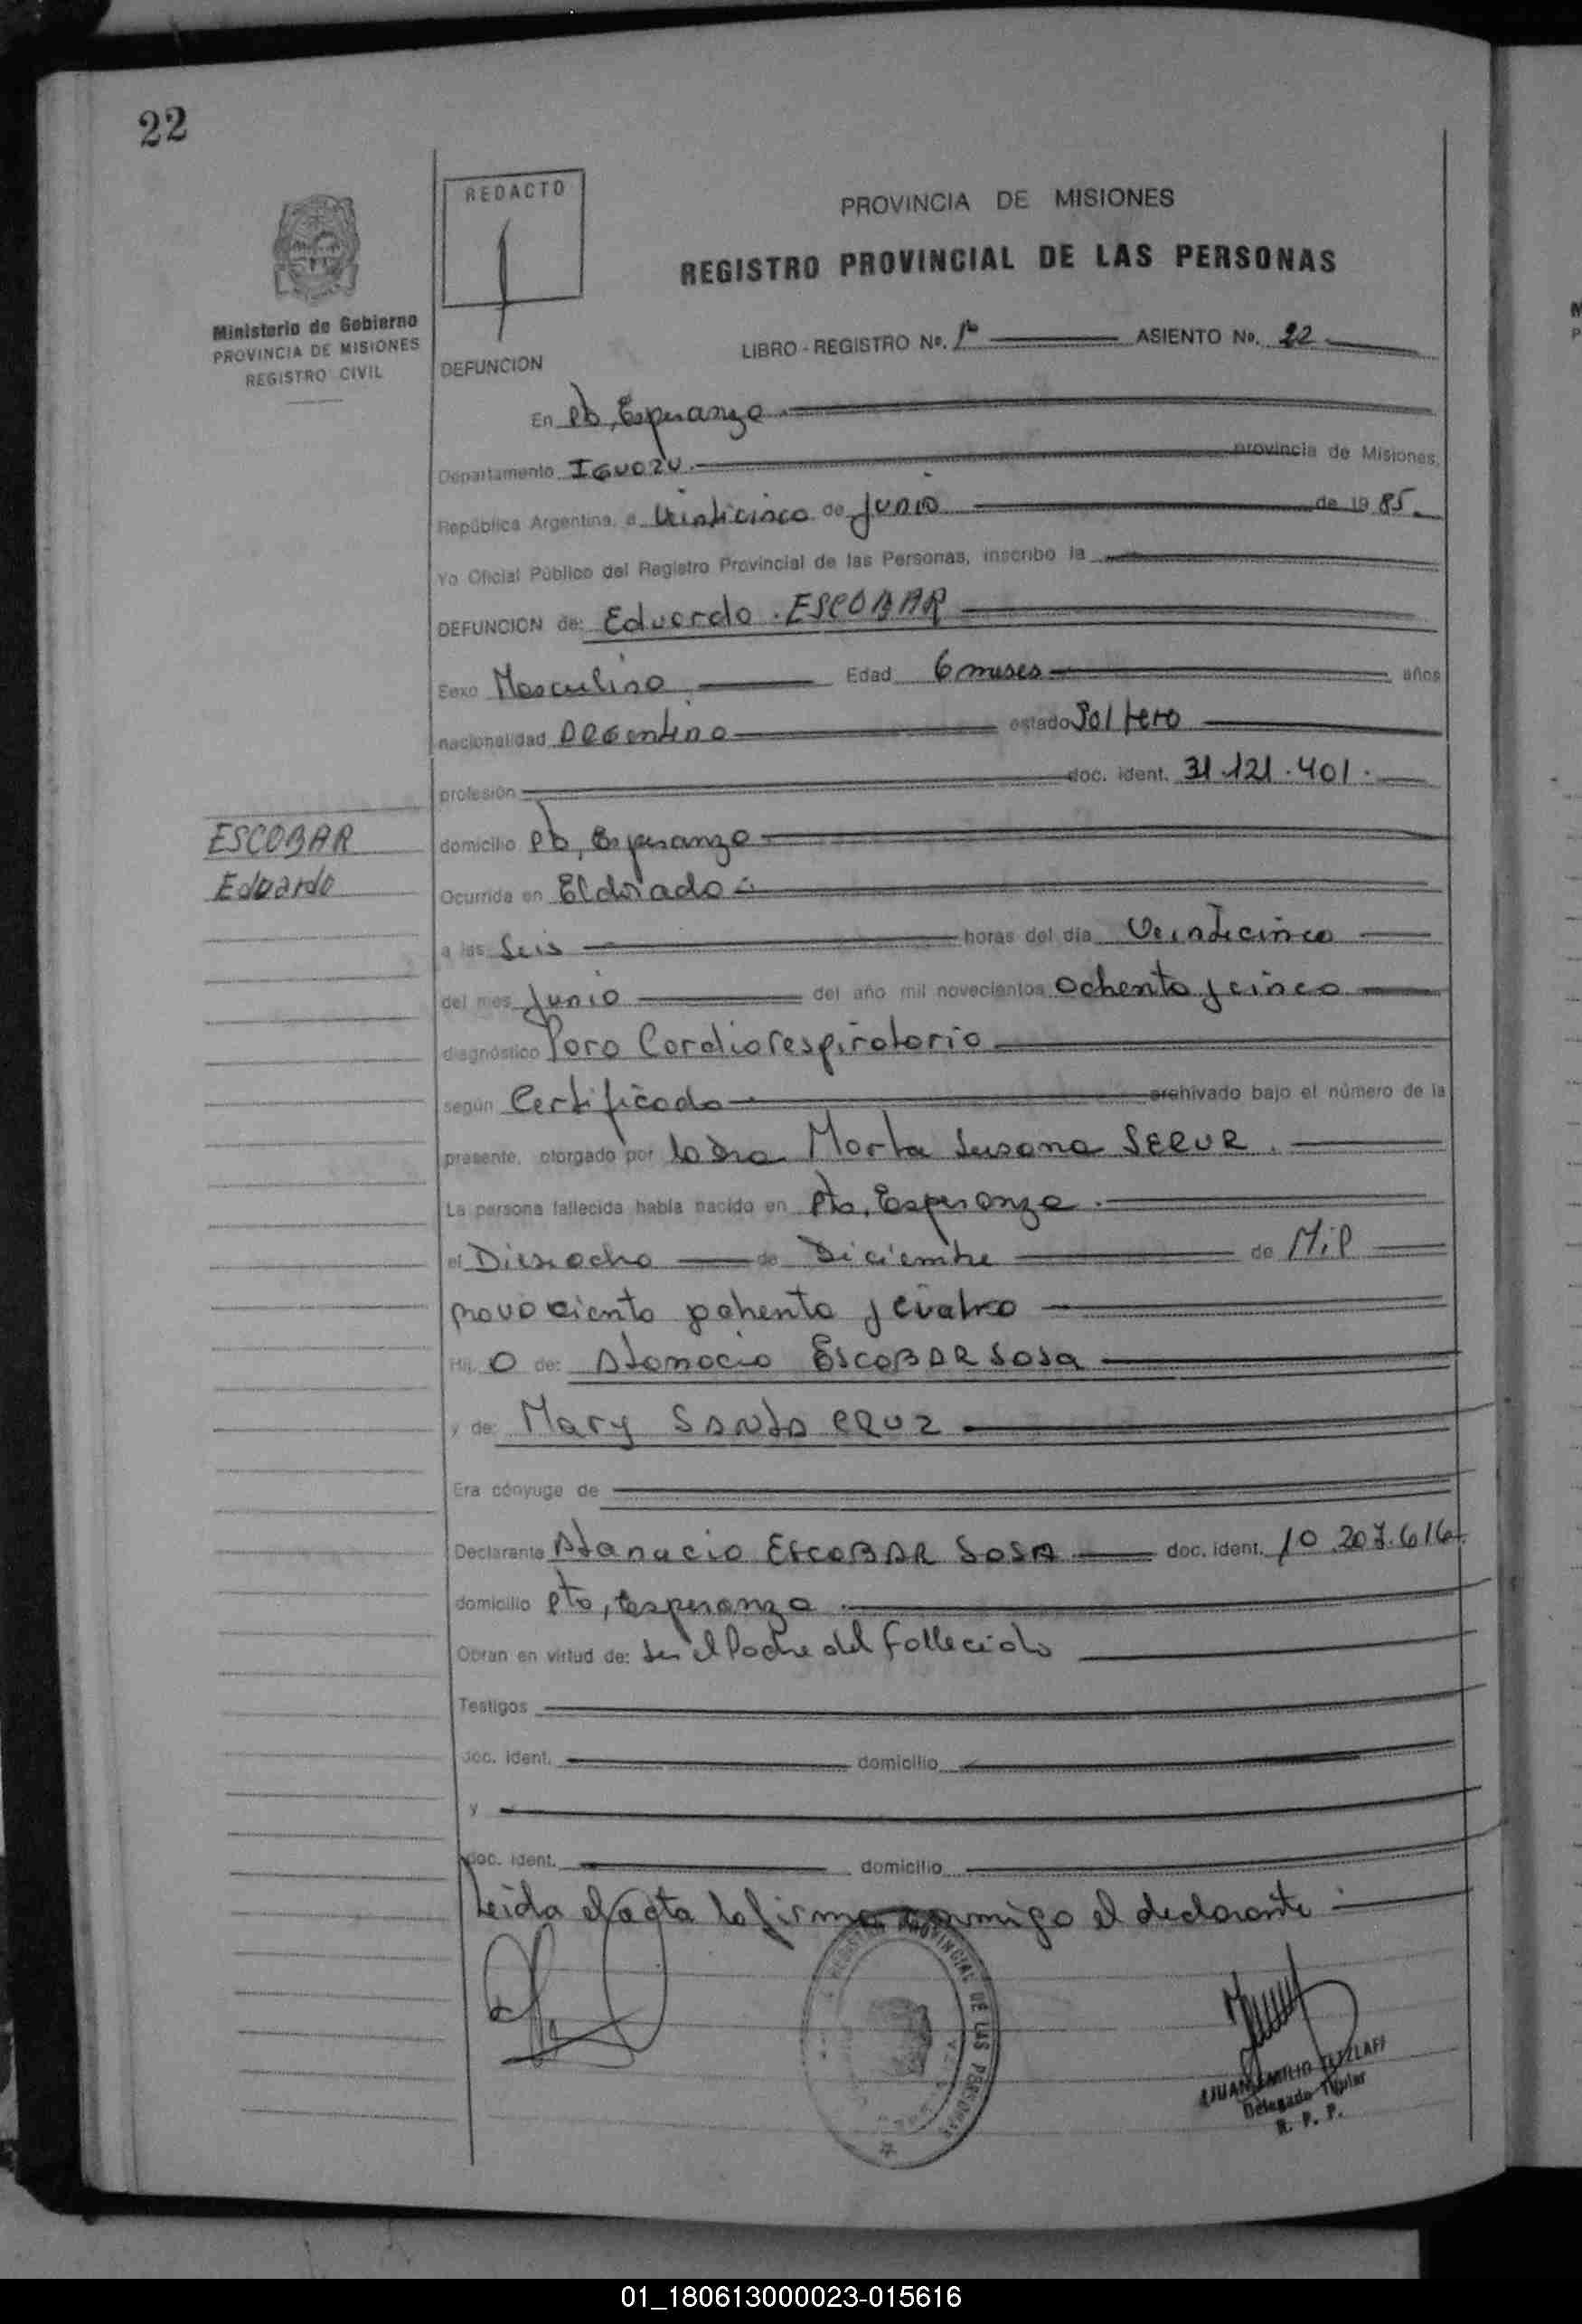 22
REDACTO
PROVINCIA DE MISIONES
REGISTRO PROVINCIAL DE LAS PERSONAS
Ministerio de Gobierno
PROVINCIA DE MISIONES
REGISTRO CIVIL
LIBRO - REGISTRO No. 1º ASIENTO No. 22
DEFUNCION
En Pto, Esperanza
Departamento IGUAZU. provincia de Misiones,
República Argentina, a Veinticinco de junio de 1985.
Yo Oficial Público del Registro Provincial de las Personas, inscribo la
DEFUNCION de: Eduardo. ESCOBAR
Sexo Masculino Edad 6 meses años
nacionalidad Argentina estado Soltero
profesión doc. ident. 31.121.401.
ESCOBAR
Eduardo
domicilio Pto, Esperanza
Ocurrida en Eldorado
a las Seis horas del día Veinticinco
del mes Junio del año mil novecientos Ochenta y cinco
diagnóstico Paro Cardiorespiratorio
según Certificado archivado bajo el número de la
presente, otorgado por la Dra Marta Susana SERUR.
La persona fallecida había nacido en Pto, Esperanza.
el Dieciocho de Diciembre de Mil
novociento ochenta y cuatro
Hij o de: Atanacio ESCOBAR SOSA
y de: Mary SANTA CRUZ
Era cónyuge de
Declarante Atanacio ESCOBAR SOSA doc. ident. 10.207.616.
domicilio Pto, Esperanza
Obran en virtud de: Ser el Padre del fallecido
Testigos
doc. ident. domicilio
y
doc. ident. domicilio
Leida el acta la firma conmigo el declarante
REGISTRO PROVINCIAL DE LAS PERSONAS
JUAN EMILIO TETZLAFF
Delegado Titular
R. P. P.
01_180613000023-015616